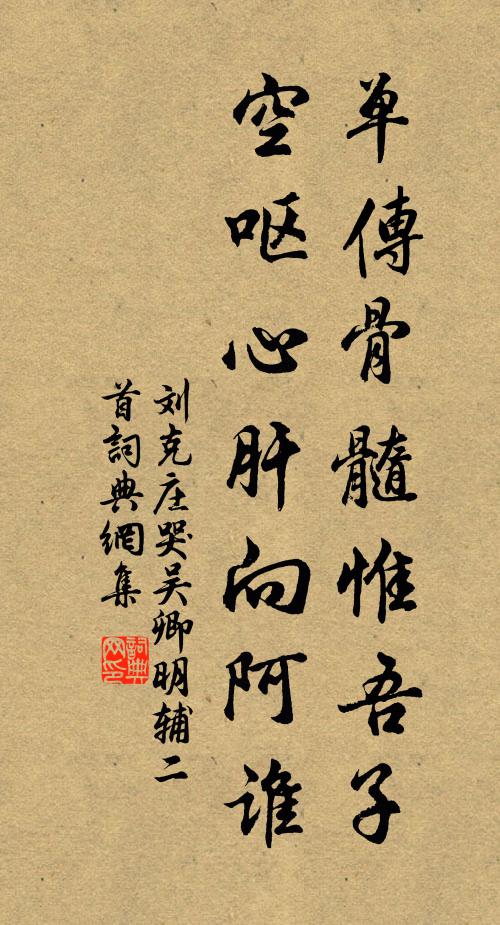 单傳骨髓惟吾子
空呕心肝向阿谁
刘克庄哭吴卿明辅二
首詞典網集
詞典
网印